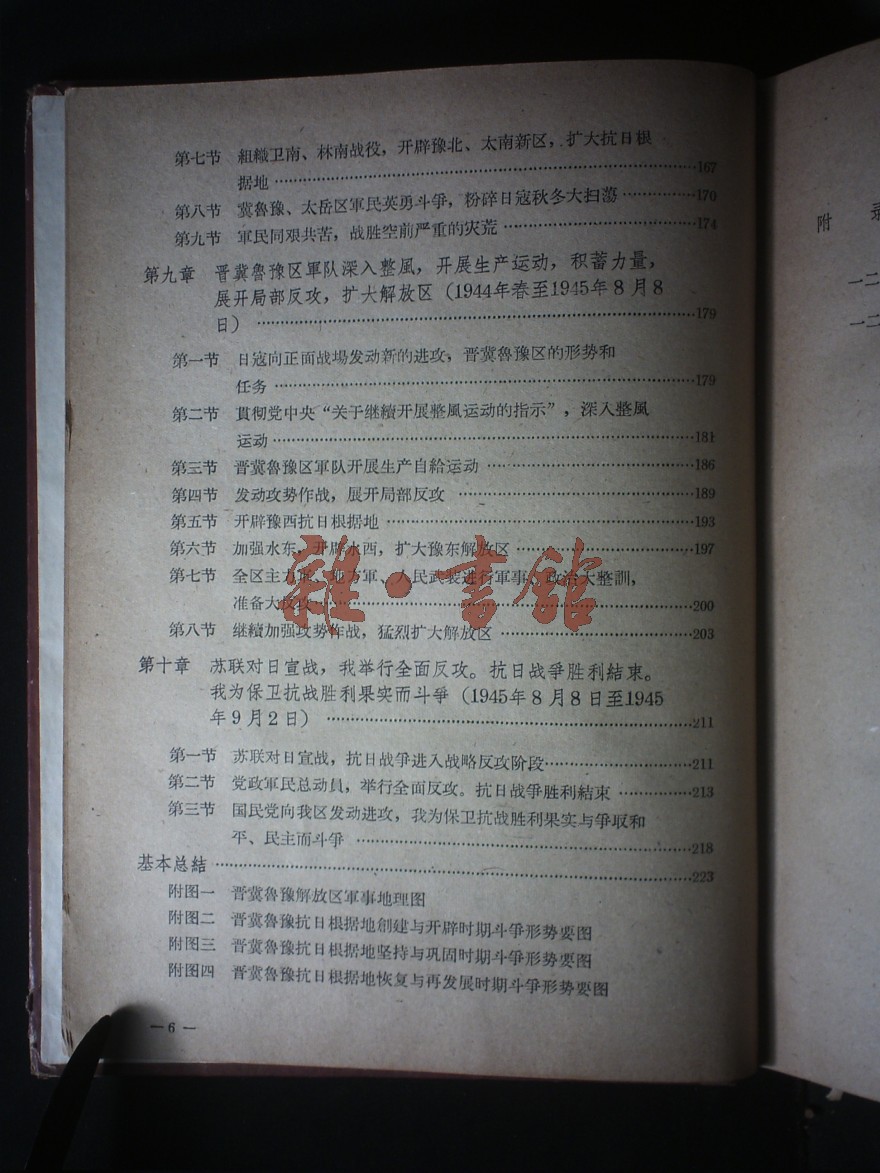 第七节 組織卫南、林南战役，开辟豫北、太南新区，扩大抗日根
据地……167
第八节 冀魯豫、太岳区軍民英勇斗爭，粉碎日寇秋冬大扫蕩……170
第九节 軍民同艰共苦，战胜空前严重的灾荒……174
第九章 晋冀魯豫区軍队深入整風，开展生产运动，积蓄力量，
展开局部反攻，扩大解放区（1944年春至1945年8月8
日）……179
第一节 日寇向正面战場发动新的进攻，晋冀魯豫区的形势和
任务……179
第二节 貫彻党中央“关于继續开展整風运动的指示”，深入整風
运动……181
第三节 晋冀魯豫区軍队开展生产自給运动……186
第四节 发动攻势作战，展开局部反攻……189
第五节 开辟豫西抗日根据地……193
第六节 加强水东，开辟水西，扩大豫东解放区……197
第七节 全区主力軍、地方軍、人民武装进行軍事、政治大整訓，
准备大反攻……200
第八节 继續加强攻势作战，猛烈扩大解放区……203
第十章 苏联对日宣战，我举行全面反攻。抗日战爭胜利結束。
我为保卫抗战胜利果实而斗爭（1945年8月8日至1945
年9月2日）……211
第一节 苏联对日宣战，抗日战爭进入战略反攻阶段……211
第二节 党政軍民总动員，举行全面反攻。抗日战爭胜利結束……213
第三节 国民党向我区发动进攻，我为保卫抗战胜利果实与爭取和
平、民主而斗爭……218
基本总結……223
附图一 晋冀魯豫解放区軍事地理图
附图二 晋冀魯豫抗日根据地創建与开辟时期斗爭形势要图
附图三 晋冀魯豫抗日根据地坚持与巩固时期斗爭形势要图
附图四 晋冀魯豫抗日根据地恢复与再发展时期斗爭形势要图
— 6 —
雜·書館
附 录
一二
一二